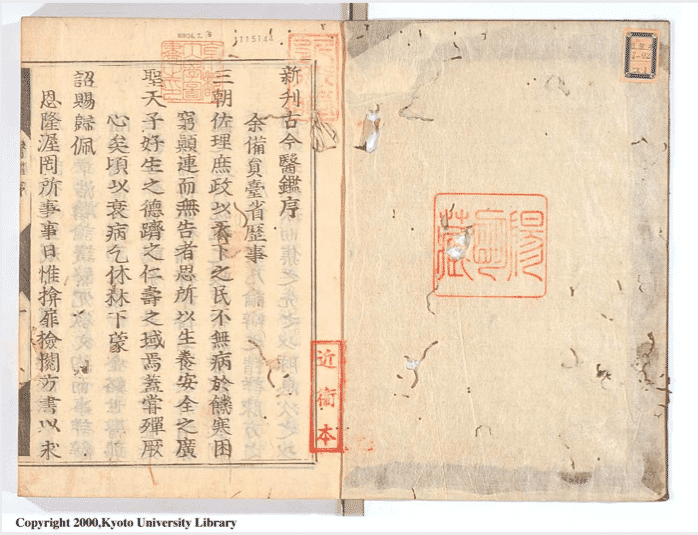 新刊古今醫鑑序
余備員臺省歷事
三朝佐理庶政以天下之民不無病於饑寒困
窮顛連而無告者思所以生養安全之廣
聖天子好生之德躋之仁壽之域焉蓋嘗殫厥
心矣頃以衰病乞休林下蒙
詔賜歸佩
恩隆渥罔所事事日惟揜扉撿閱方書以求
近衞本
陽明藏
115144
Copyright 2000,Kyoto University Library